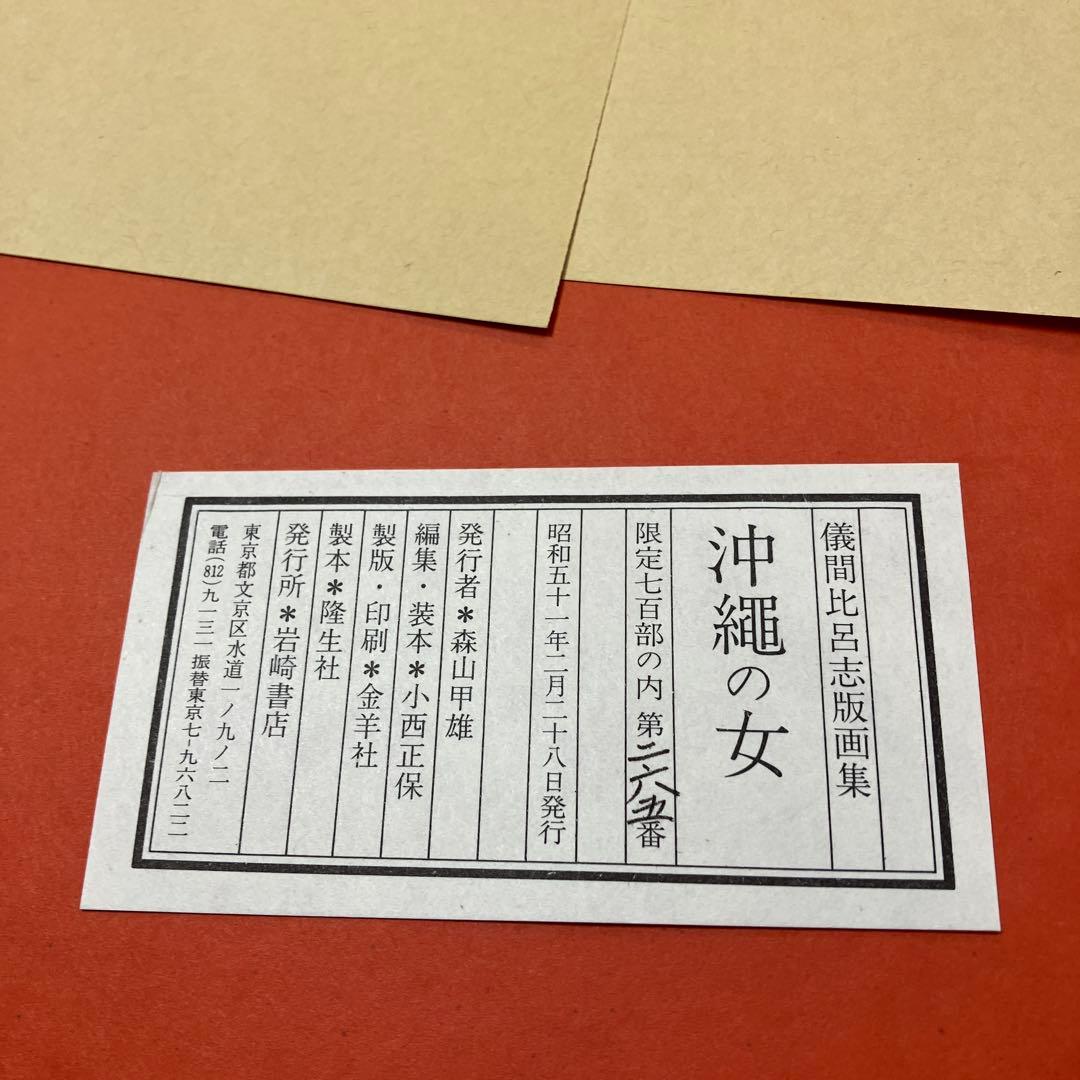 儀間比呂志版画集
沖縄の女
限定七百部の内 第二六五番
昭和五十一年二月二十八日発行
発行者＊森山甲雄
編集・装本＊小西正保
製版・印刷＊金羊社
製本＊隆生社
発行所＊岩崎書店
東京都文京区水道一ノ九ノ二
電話(812)九一三一 振替東京七-九六八二二